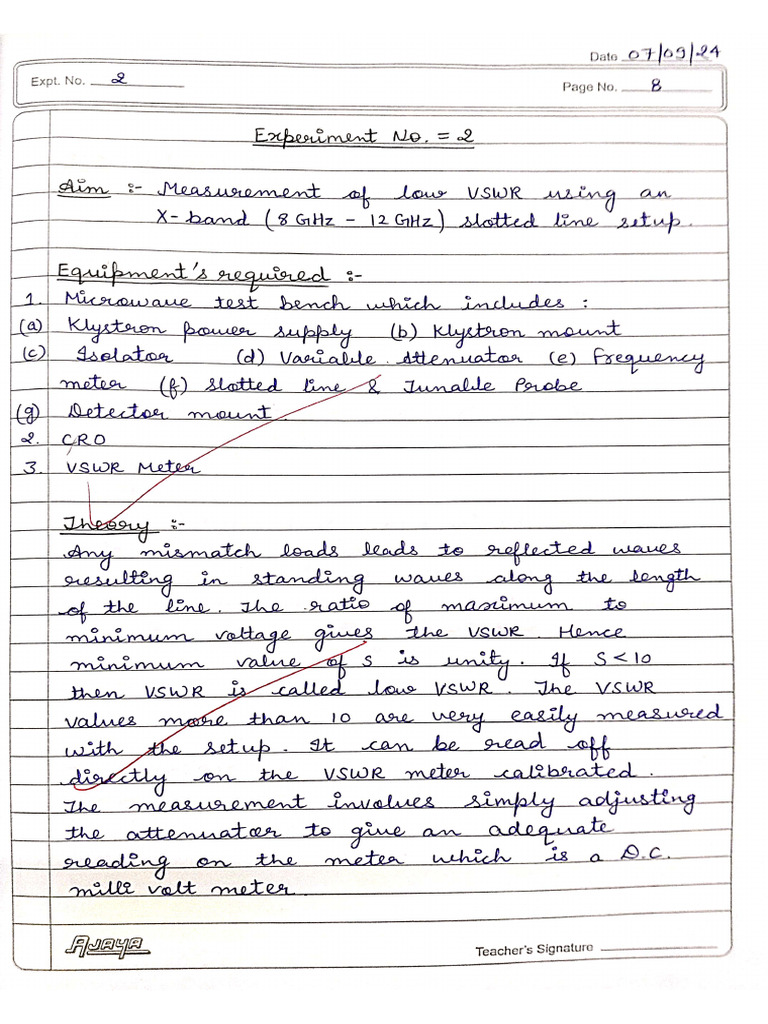 Date 07/09/24
Expt. No. 2
Page No. 8
Experiment No. = 2
Aim :- Measurement of low VSWR using an
X-band (8 GHz - 12 GHz) slotted line setup.
Equipment's required :-
1. Microwave test bench which includes :
(a) Klystron power supply (b) Klystron mount
(c) Isolator (d) Variable Attenuator (e) Frequency
meter (f) Slotted line & Tunable Probe
(g) Detector mount.
2. CRO
3. VSWR Meter
Theory :-
Any mismatch loads leads to reflected waves
resulting in standing waves along the length
of the line. The ratio of maximum to
minimum voltage gives the VSWR. Hence
minimum value of S is unity. If S < 10
then VSWR is called low VSWR. The VSWR
values more than 10 are very easily measured
with the setup. It can be read off
directly on the VSWR meter calibrated.
The measurement involves simply adjusting
the attenuator to give an adequate
reading on the meter which is a D.C.
milli volt meter.
AJAYA
Teacher's Signature